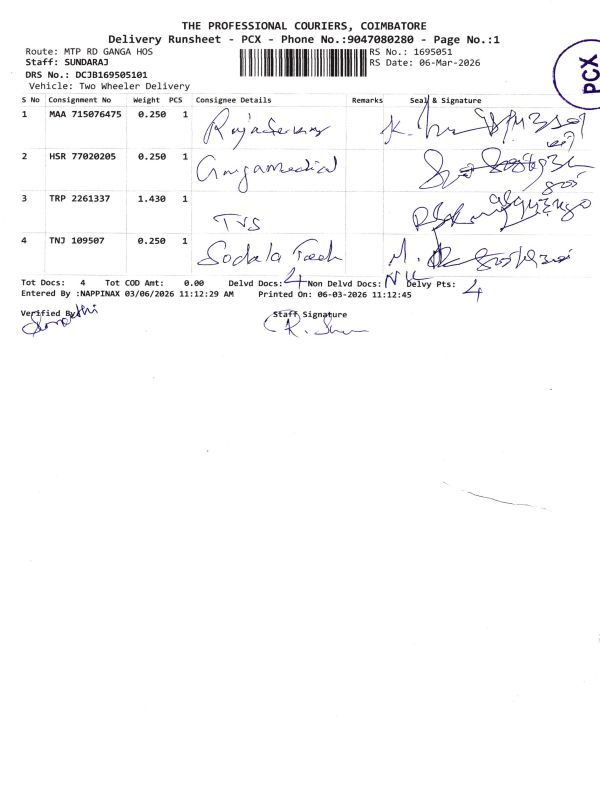 THE PROFESSIONAL COURIERS, COIMBATORE
Delivery Runsheet - PCX - Phone No.:9047080280 - Page No.:1
Route: MTP RD GANGA HOS RS No.: 1695051
Staff: SUNDARAJ RS Date: 06-Mar-2026
DRS No.: DCJB169505101
Vehicle: Two Wheeler Delivery
PCX
S No Consignment No Weight PCS Consignee Details Remarks Seal & Signature
1 MAA 715076475 0.250 1
2 HSR 77020205 0.250 1 Gangamedical
3 TRP 2261337 1.430 1 TVS
4 TNJ 109507 0.250 1
Tot Docs: 4 Tot COD Amt: 0.00 Delvd Docs: 4 Non Delvd Docs: Nil Delvy Pts: 4
Entered By :NAPPINAX 03/06/2026 11:12:29 AM Printed On: 06-03-2026 11:12:45
Verified By Staff Signature